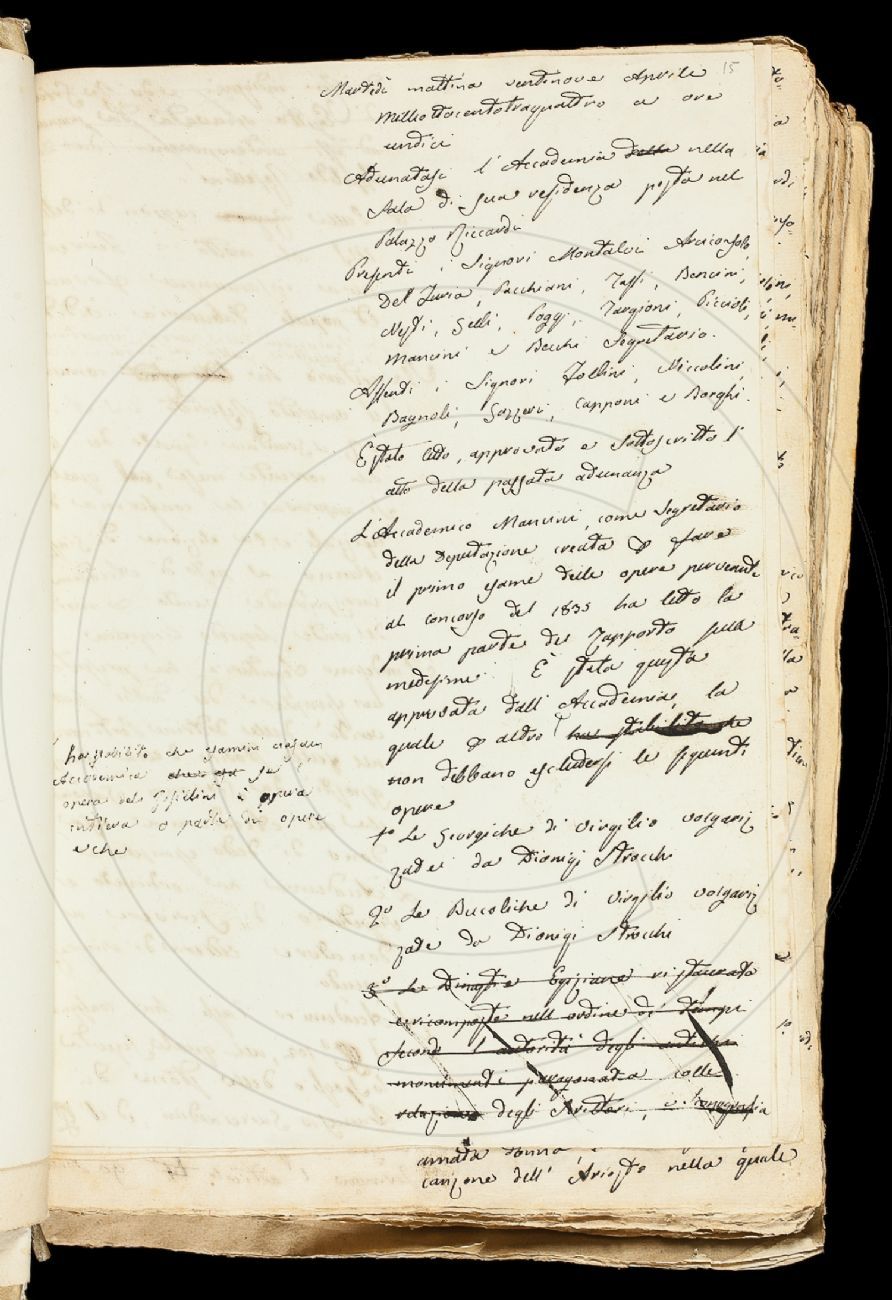 15
Martedì mattina ventinove Aprile
milleottocentotraquattro a ore
undici
Adunatasi l'Accademia della nella
Sala di sua residenza posta nel
Palazzo Riccardi
Presenti i Signori Montalvi Arciconsolo,
Del Furia, Pacchiani, Tassi, Bencini,
Nesti, Gelli, Poggi, Targioni, Piccioli,
Mancini e Becchi Segretario.
Assenti i Signori Zollini, Niccolini,
Bagnoli, Gazzeri, Capponi e Borghi.
È stato letto, approvato e sottoscritto l'
atto della passata adunanza
L'Accademico Mancini, come Segretario
della Deputazione creata p fare
il primo esame delle opere pervenute
al concorso del 1835 ha letto la
prima parte del Rapporto sulla
medesime. È stata questa
approvata dall'Accademia, la
quale p altro ha stabilito che
non debbano escludersi le seguenti
opere
ha stabilito che esamini ciascun
Accademico se l'
opera del è opera
intiera o parte di opere
e che
1º Le Georgiche di Virgilio volgariz
zate da Dionigi Strocchi
2º Le Bucoliche di Virgilio volgariz
zate da Dionigi Strocchi
3º Le Dinastie Egiziane ristaurate
e ricomposte nell'ordine di tempi
secondo l'autorità degli antichi
monumenti paragonata colle
relazioni degli Scrittori, e
amata donna
canzone dell'Ariosto nella quale